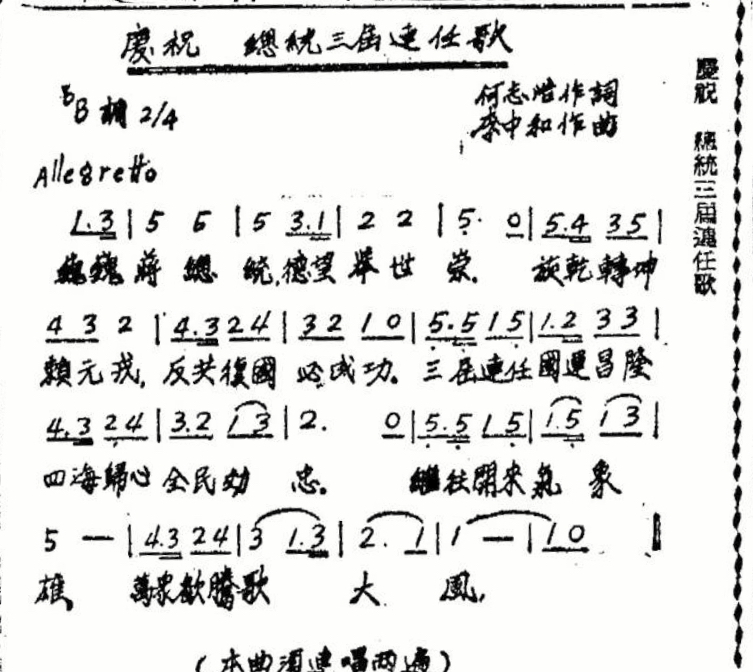 慶祝 總統三屆連任歌
ᵇB 調 2/4
何志浩作詞
李中和作曲
Allegretto
1.3 | 5 5 | 5 3.1 | 2 2 | 5. 0 | 5.4 35 |
巍巍蔣總統,德望舉世崇. 旋乾轉坤
4 3 2 | 4.3 24 | 32 10 | 5.5 15 | 1.2 33 |
賴元戎,反共復國必成功。三屆連任國運昌隆
4.3 24 | 3.2 13 | 2. 0 | 5.5 15 | 1.5 13 |
四海歸心全民効忠。繼往開來氣象
5 — | 4.3 24 | 3 1.3 | 2. 1 | 1 — | 10
雄, 萬衆歡騰歌大風,
(本曲須連唱兩遍)
慶祝 總統三屆連任歌